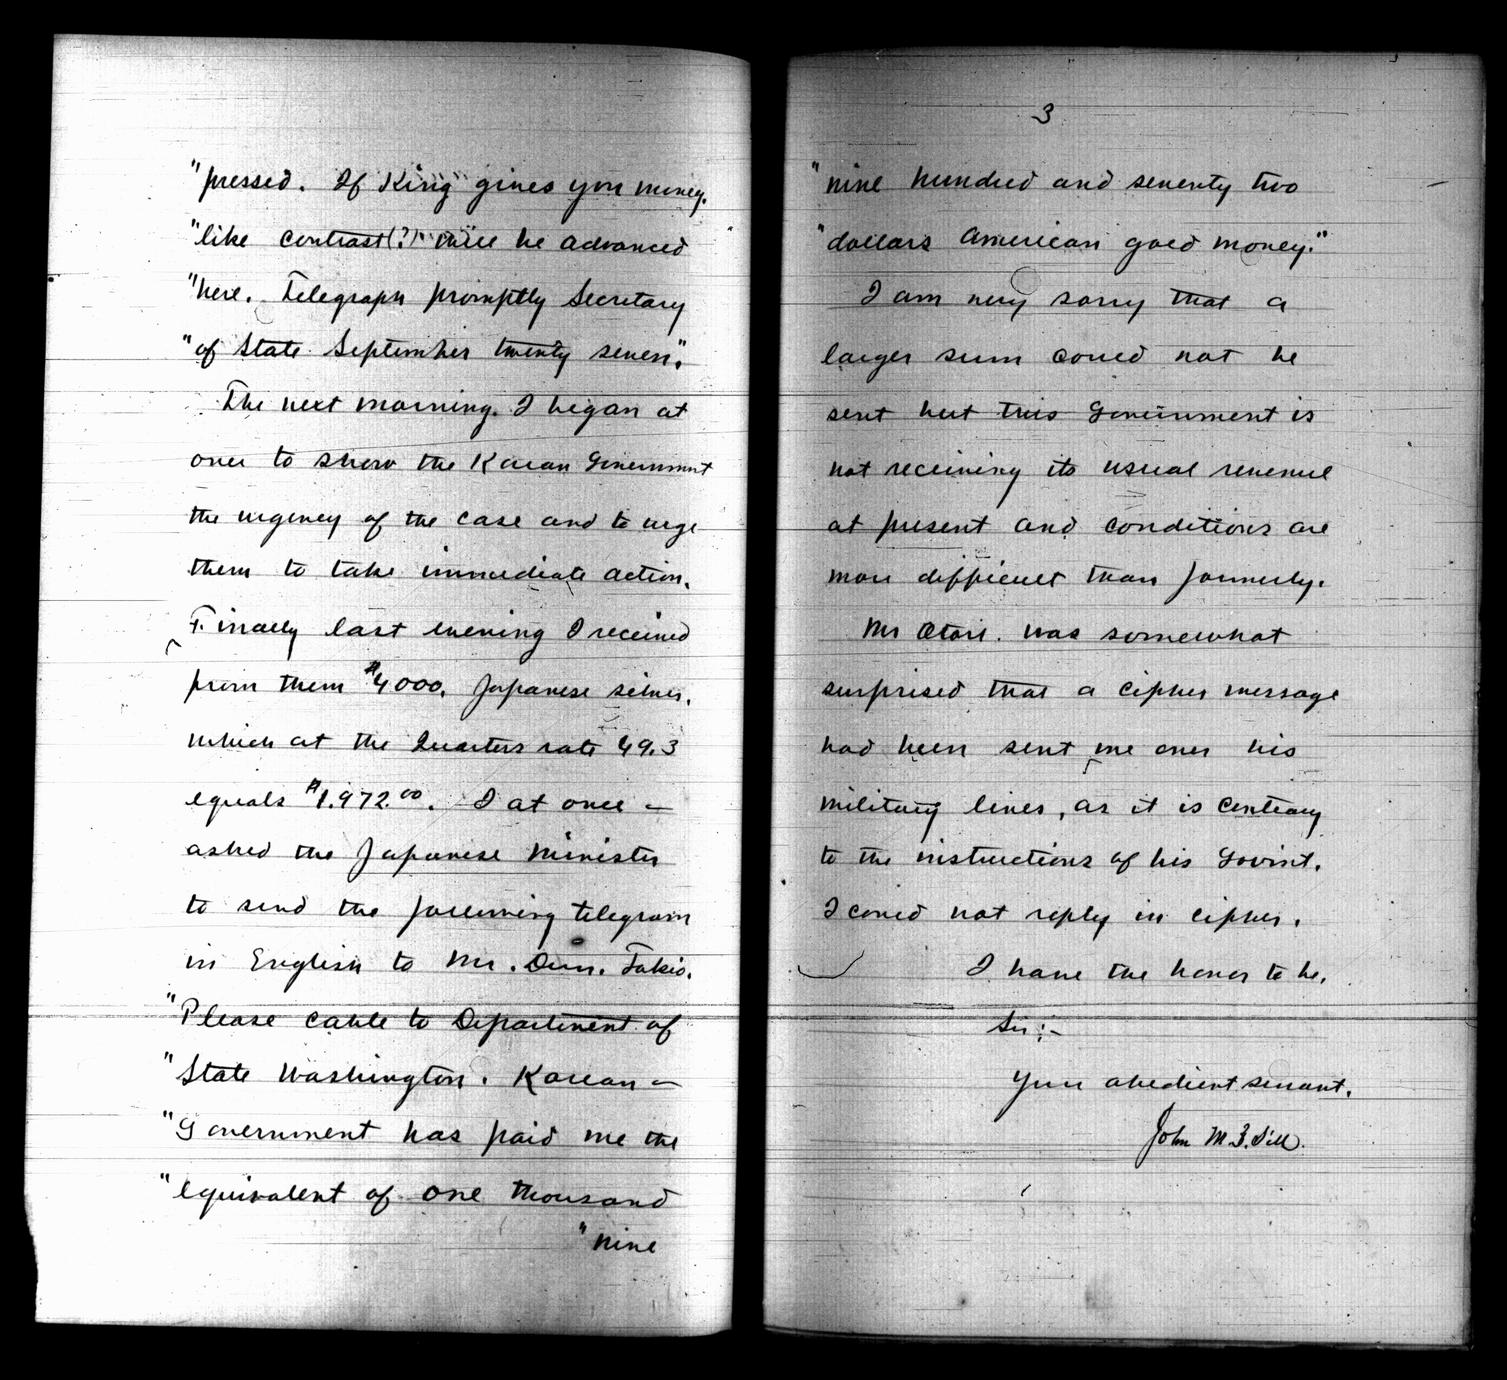 "pressed. If King gives you money.
"like contrast(?) will be advanced
"here. Telegraph promptly Secretary
"of State September twenty seven".
The next morning. I began at
once to show the Korean Government
the urgency of the case and to urge
them to take immediate action.
Finally last evening I received
from them $4000. Japanese silver.
which at the Quarters rate 49.3
equals $1.972.00. I at once —
asked the Japanese Minister
to send the following telegram
in English to Mr. Dun. Tokio.
"Please cable to Department of
"State Washington. Korean —
"Government has paid me the
"equivalent of one thousand
"nine
3
"nine hundred and seventy two
"dollars American gold money."
I am very sorry that a
larger sum could not be
sent but this Government is
not receiving its usual revenue
at present and conditions are
more difficult than formerly.
Mr Otori. was somewhat
surprised that a cipher message
had been sent me over his
military lines, as it is contrary
to the instructions of his Govmt.
I could not reply in cipher.
I have the honor to be.
Sir:-
Your obedient servant.
John M. B. Sill.